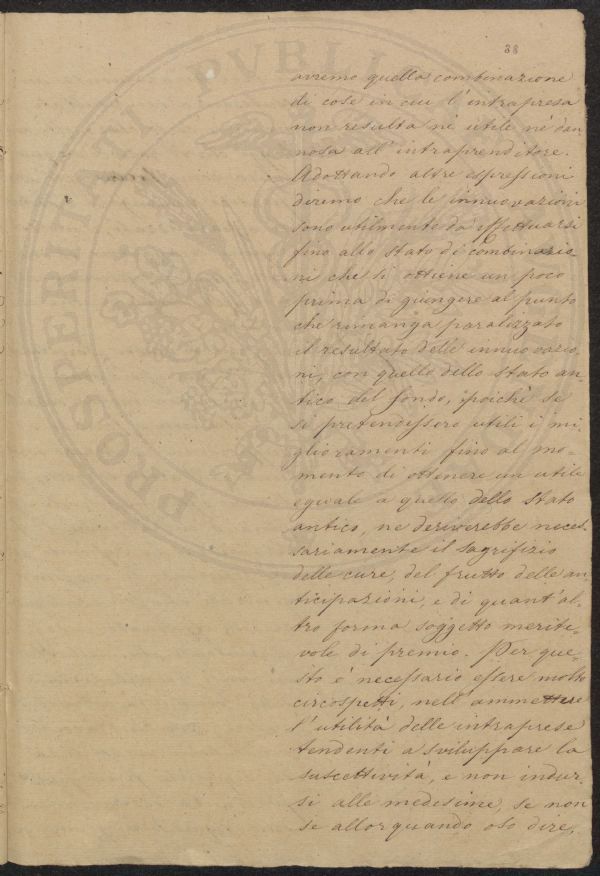 38
avremo quella combinazione
di cose in cui l'intrapresa
non resulta nè utile nè dan-
nosa all'intraprenditore.
Adottando altre espressioni
diremo che le innuovazioni
sono utilmente da effettuarsi
fino allo stato di combinazio-
ni che si ottiene un poco
prima di giungere al punto
che rimanga paralizzato
il resultato delle innuovazio-
ni, con quello dello stato an-
tico del fondo, poichè se
si pretendessero utili i mi-
glioramenti fino al mo-
mento di ottenere un utile
eguale a quello dello stato
antico, ne deriverebbe neces-
sariamente il sagrifizio
delle cure, del frutto delle an-
ticipazioni, e di quant'al-
tro forma soggetto merite-
vole di premio. Per que-
sto è necessario essere molto
circospetti, nell'ammettere
l'utilità delle intraprese
tendenti a sviluppare la
suscettività, e non indur-
si alle medesime, se non
se allorquando oso dire,
PROSPERITATI PVBLI